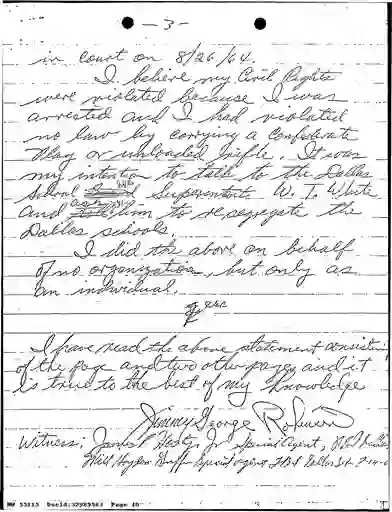 - 3 -
in court on 8/26/64.
I believe my Civil Rights
were violated because I was
arrested and I had violated
no law by carrying a Confederate
Flag or unloaded rifle. It was
my intention to talk to the Dallas
School Superintendent W. T. White
and ask him to resegregate the
Dallas schools.
I did the above on behalf
of no organization, but only as
an individual.
I have read the above statement consisting
of this page and two other pages and it
is true to the best of my knowledge
Jimmy George Robinson
Witness: James P. Hosty, Jr. Special Agent, FBI, Dallas
Will Hayden Griffin Special Agent FBI Dallas
NW 55115 DocId:32989563 Page 40